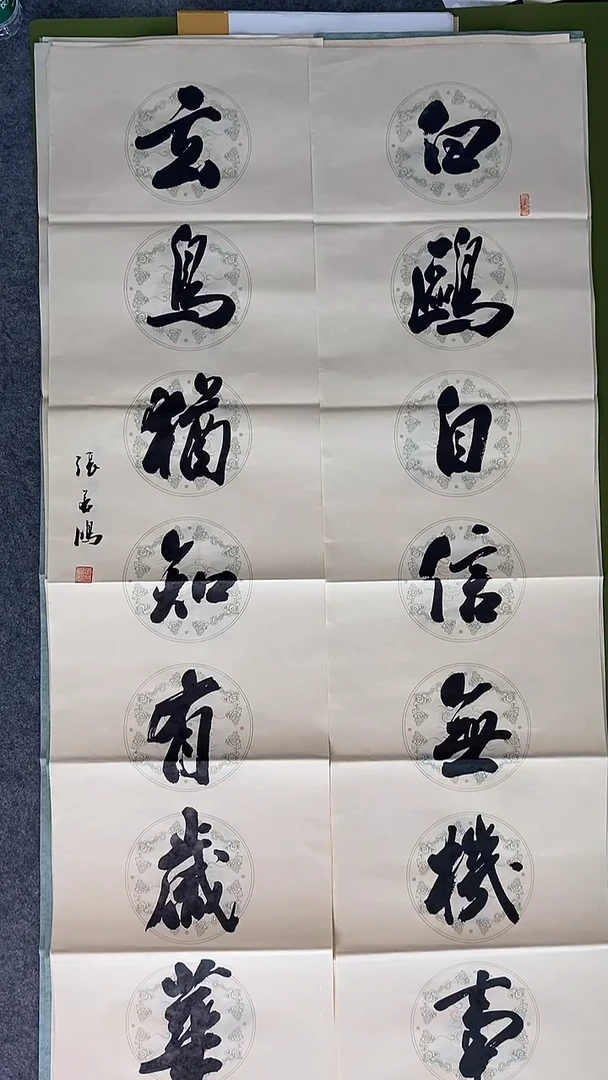 白鷗自信無機事
玄鳥猶知有歲華
張